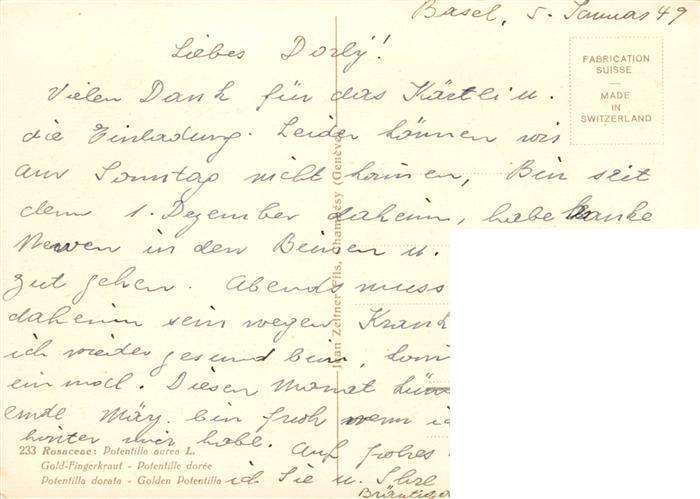 Basel, 5. Januar 49
Liebes Dorly!
FABRICATION
SUISSE
MADE
IN
SWITZERLAND
Vielen Dank für das Kärtli u.
die Einladung. Leider können wir
am Sonntag nicht kommen, Bin seit
dem 1. Dezember daheim, habe kranke
Nerven in den Beinen u.
gut gehen. Abends muss
daheim sein wegen Krank
ich wieder gesund bin,
ein mal. Diesen Monat
ende März. bin froh wenn ic
hinter mir habe. Auf frohes
ich Sie u. Ihre
Bräutiga
Jean Zeltner Fils, Chambésy (Genève)
233 Rosaceae: Potentilla aurea L.
Gold-Fingerkraut - Potentille dorée
Potentilla dorata - Golden Potentilla